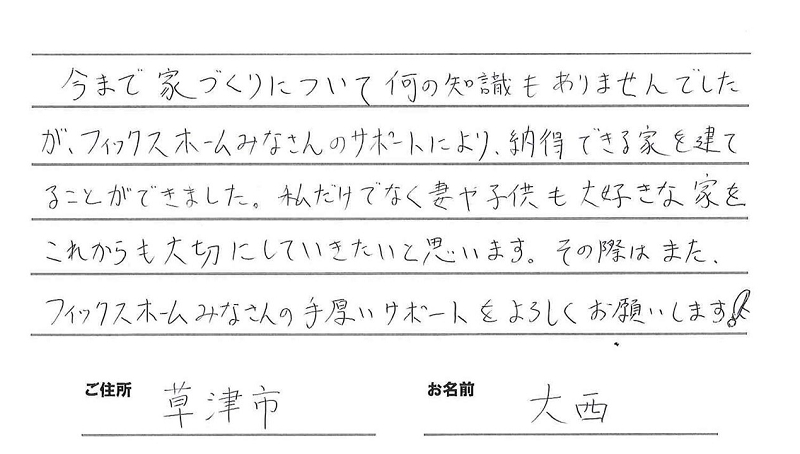 今まで家づくりについて何の知識もありませんでした
が、フィックスホームみなさんのサポートにより、納得できる家を建て
ることができました。私だけでなく妻や子供も大好きな家を
これからも大切にしていきたいと思います。その際はまた、
フィックスホームみなさんの手厚いサポートをよろしくお願いします!
ご住所 草津市 お名前 大西